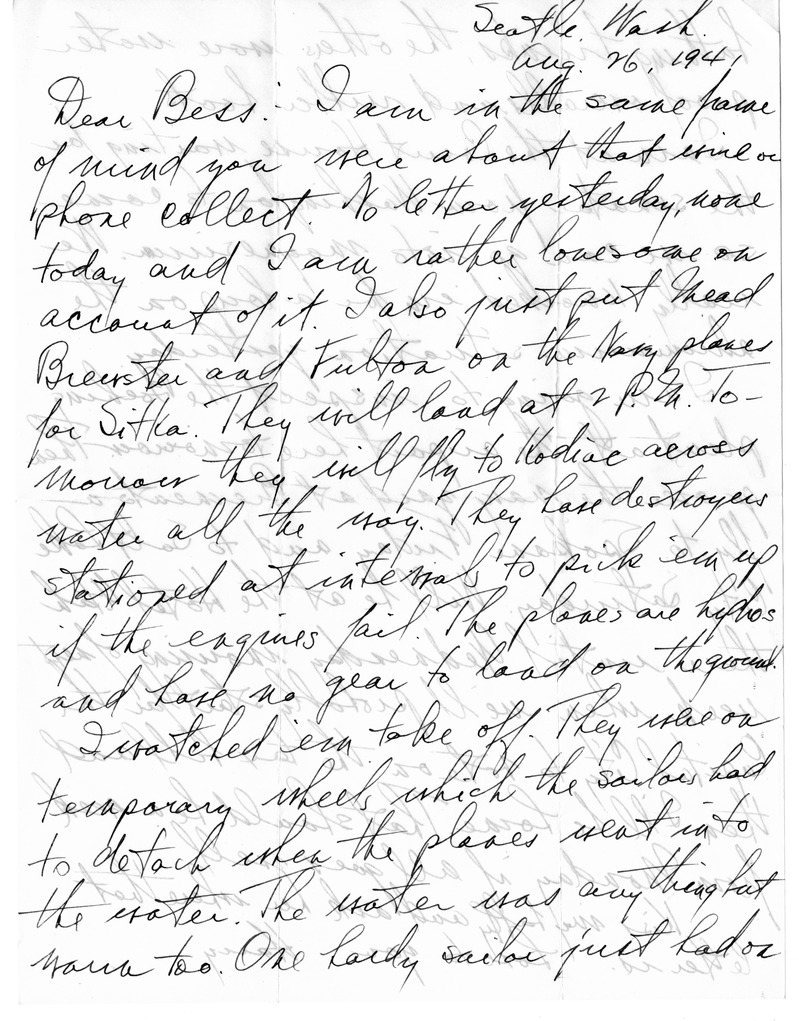 Seattle, Wash.
Aug. 26, 1941
Dear Bess:- I am in the same frame
of mind you were about that wire or
phone collect. No letter yesterday, none
today and I am rather lonesome on
account of it. I also just put Mead
Brewster and Fulton on the Navy planes
for Sitka. They will land at 2 P.M. To-
morrow they will fly to Kodiac across
water all the way. They have destroyers
stationed at intervals to pick 'em up
if the engines fail. The planes are hydros
and have no gear to land on the ground.
I watched 'em take off. They were on
temporary wheels which the sailors had
to detach when the planes went into
the water. The water was anything but
warm too. One hardy sailor just had on